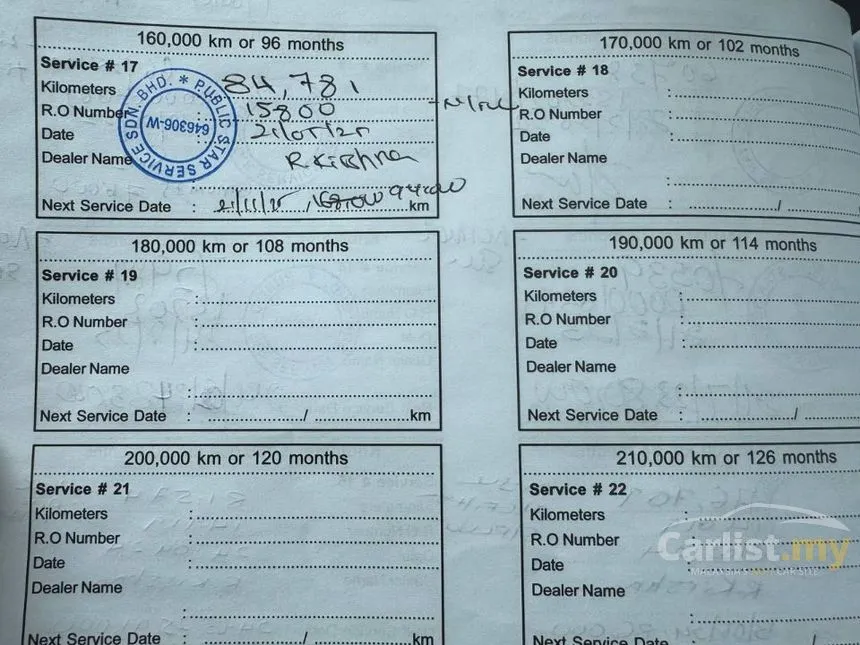 160,000 km or 96 months
Service # 17
Kilometers 84,781
R.O Number : 15800
Date 21/05/25
Dealer Name R.Krishna
Next Service Date : 21/11/25 / 94,000 km
PUBLIC STAR SERVICE SDN. BHD. *
646306-W
170,000 km or 102 months
Service # 18
Kilometers :
R.O Number :
Date :
Dealer Name
:
Next Service Date : /
180,000 km or 108 months
Service # 19
Kilometers :
R.O Number :
Date :
Dealer Name
:
Next Service Date : / km
190,000 km or 114 months
Service # 20
Kilometers :
R.O Number :
Date :
Dealer Name
:
Next Service Date : /
200,000 km or 120 months
Service # 21
Kilometers :
R.O Number :
Date :
Dealer Name
:
Next Service Date : / km
210,000 km or 126 months
Service # 22
Kilometers :
R.O Number :
Date :
Dealer Name
:
Next Service Date : /
Carlist.my